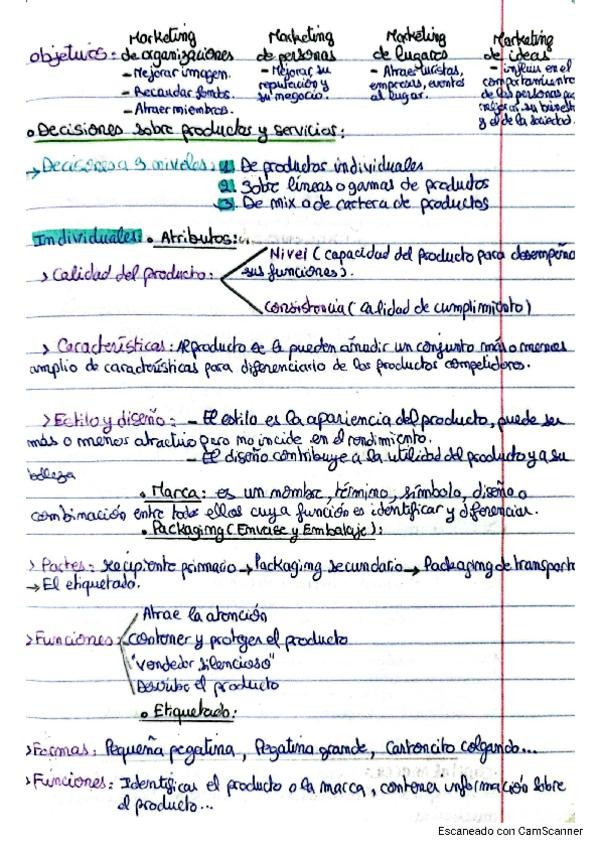 Marketing Marketing Marketing Marketing
objetivos: de organizaciones de personas de lugares de ideas
- Mejorar imagen. - Mejorar su - Atraer turistas, - influir en el
- Recaudar fondos. reputación y empresas, eventos comportamiento
- Atraer miembros. su negocio. al lugar. de las personas para
mejorar su bienest
y el de la sociedad.
• Decisiones sobre productos y servicios:
→ Decisiones a 3 niveles: 1. De productos individuales
2. Sobre líneas o gamas de productos
3. De mix o de cartera de productos
Individuales: • Atributos:
Nivel (capacidad del producto para desempeña
> Calidad del producto: sus funciones).
Consistencia (calidad de cumplimiento)
> Características: Al producto se le pueden añadir un conjunto más o menos
amplio de características para diferenciarlo de los productos competidores.
> Estilo y diseño: - El estilo es la apariencia del producto, puede ser
más o menos atractivo pero no incide en el rendimiento.
- El diseño contribuye a la utilidad del producto y a su
belleza
• Marca: es un nombre, término, símbolo, diseño o
combinación entre todos ellos cuya función es identificar y diferenciar.
• Packaging (Envase y Embalaje):
> Partes: recipiente primario → Packaging secundario → Packaging de transporte
→ El etiquetado.
Atrae la atención
> Funciones: contener y proteger el producto
"vendedor silencioso"
Describe el producto
• Etiquetado:
> Formas: Pequeña pegatina, Pegatina grande, Cartoncito colgando...
> Funciones: Identificar el producto o la marca, contener información sobre
el producto...
Escaneado con CamScanner